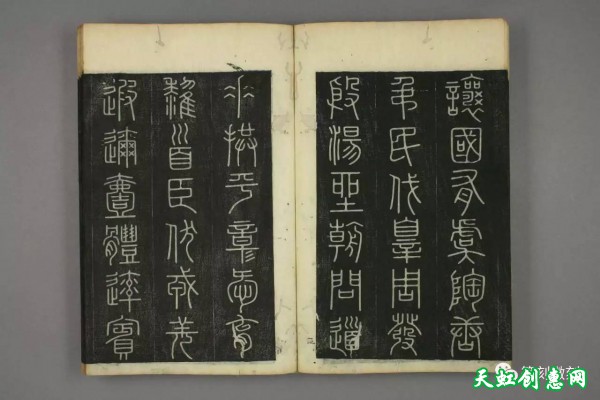 讓國有虞陶唐
弔民伐辠周發
殷湯坐朝問道
垂拱平章愛育
黎首臣伏戎羌
遐邇壹體率賓
天虹创惠网